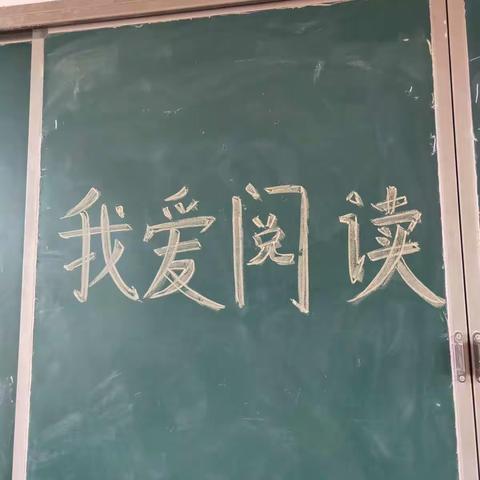 我爱阅读